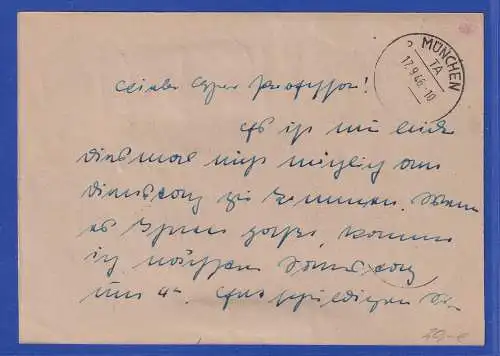 MÜNCHEN
TA
17.9.46.-10
Lieber Herr Professor!
Es ist mir leider
diesmal nicht möglich am
Dienstag zu kommen. Wenn
es Ihnen paßt, komme
ich nächsten Samstag
um 4h. Entschuldigen Sie